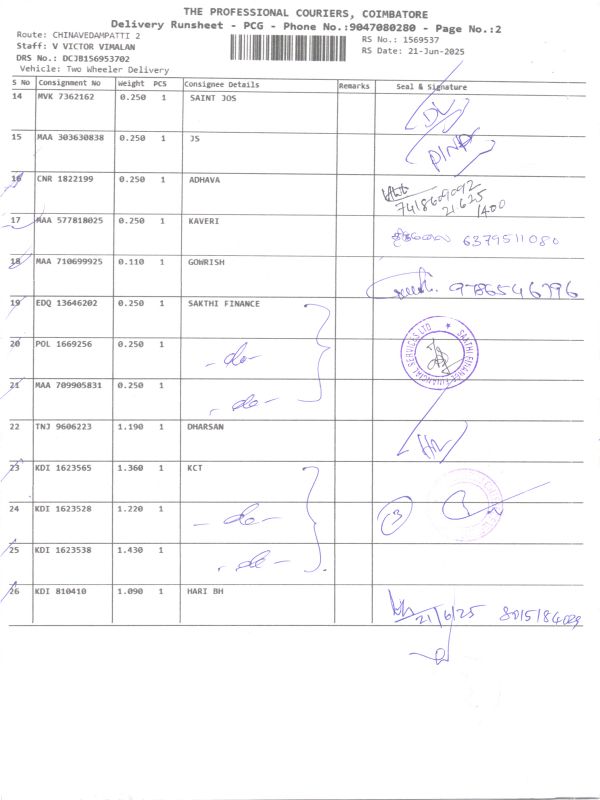 THE PROFESSIONAL COURIERS, COIMBATORE
Delivery Runsheet - PCG - Phone No.:9047080280 - Page No.:2
Route: CHINAVEDAMPATTI 2
RS No.: 1569537
Staff: V VICTOR VIMALAN
RS Date: 21-Jun-2025
DRS No.: DCJB156953702
Vehicle: Two Wheeler Delivery
S No Consignment No Weight PCS Consignee Details Remarks Seal & Signature
14 MVK 7362162 0.250 1 SAINT JOS
15 MAA 303630838 0.250 1 JS
16 CNR 1822199 0.250 1 ADHAVA
7418609092
21625
1400
17 MAA 577818025 0.250 1 KAVERI 6379511080
18 MAA 710699925 0.110 1 GOWRISH 9786546796
19 EDQ 13646202 0.250 1 SAKTHI FINANCE
20 POL 1669256 0.250 1 - do -
SAKTHI FINANCE FINANCIAL SERVICES LTD
21 MAA 709905831 0.250 1 - do -
22 TNJ 9606223 1.190 1 DHARSAN
23 KDI 1623565 1.360 1 KCT
24 KDI 1623528 1.220 1 - do - 3
25 KDI 1623538 1.430 1 - do -
26 KDI 810410 1.090 1 HARI BH
21/6/25